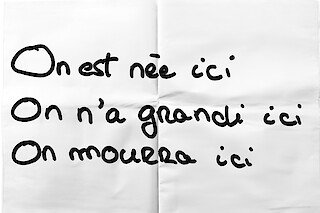 On est née ici
On n'a grandi ici
On mourra ici